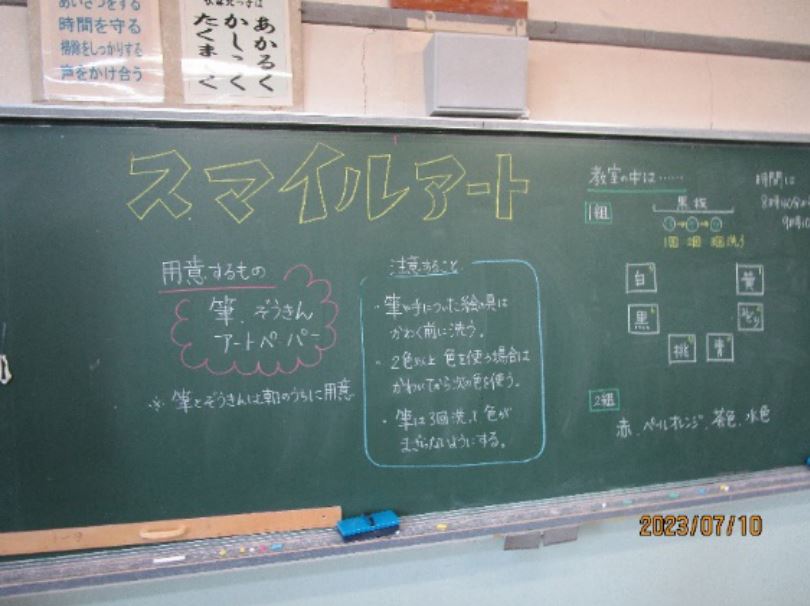 あいさつをする
時間を守る
掃除をしっかりする
声をかけ合う
あかるく
かしこく
たくましく
スマイルアート
用意するもの
筆、ぞうきん
アートペーパー
※ 筆とぞうきんは朝のうちに用意
注意すること
・筆や手についた絵の具は
かわく前に洗う。
・2色以上 色を使う場合は
かわいてから次の色を使う。
・筆は3回洗って色が
まざらないようにする。
教室の中は……
1組
黒板
1回 2回 3回洗う
白
黒
桃
青
みどり
黄
2組
赤、ペールオレンジ、茶色、水色
時間は
8時40分から
2023/07/10